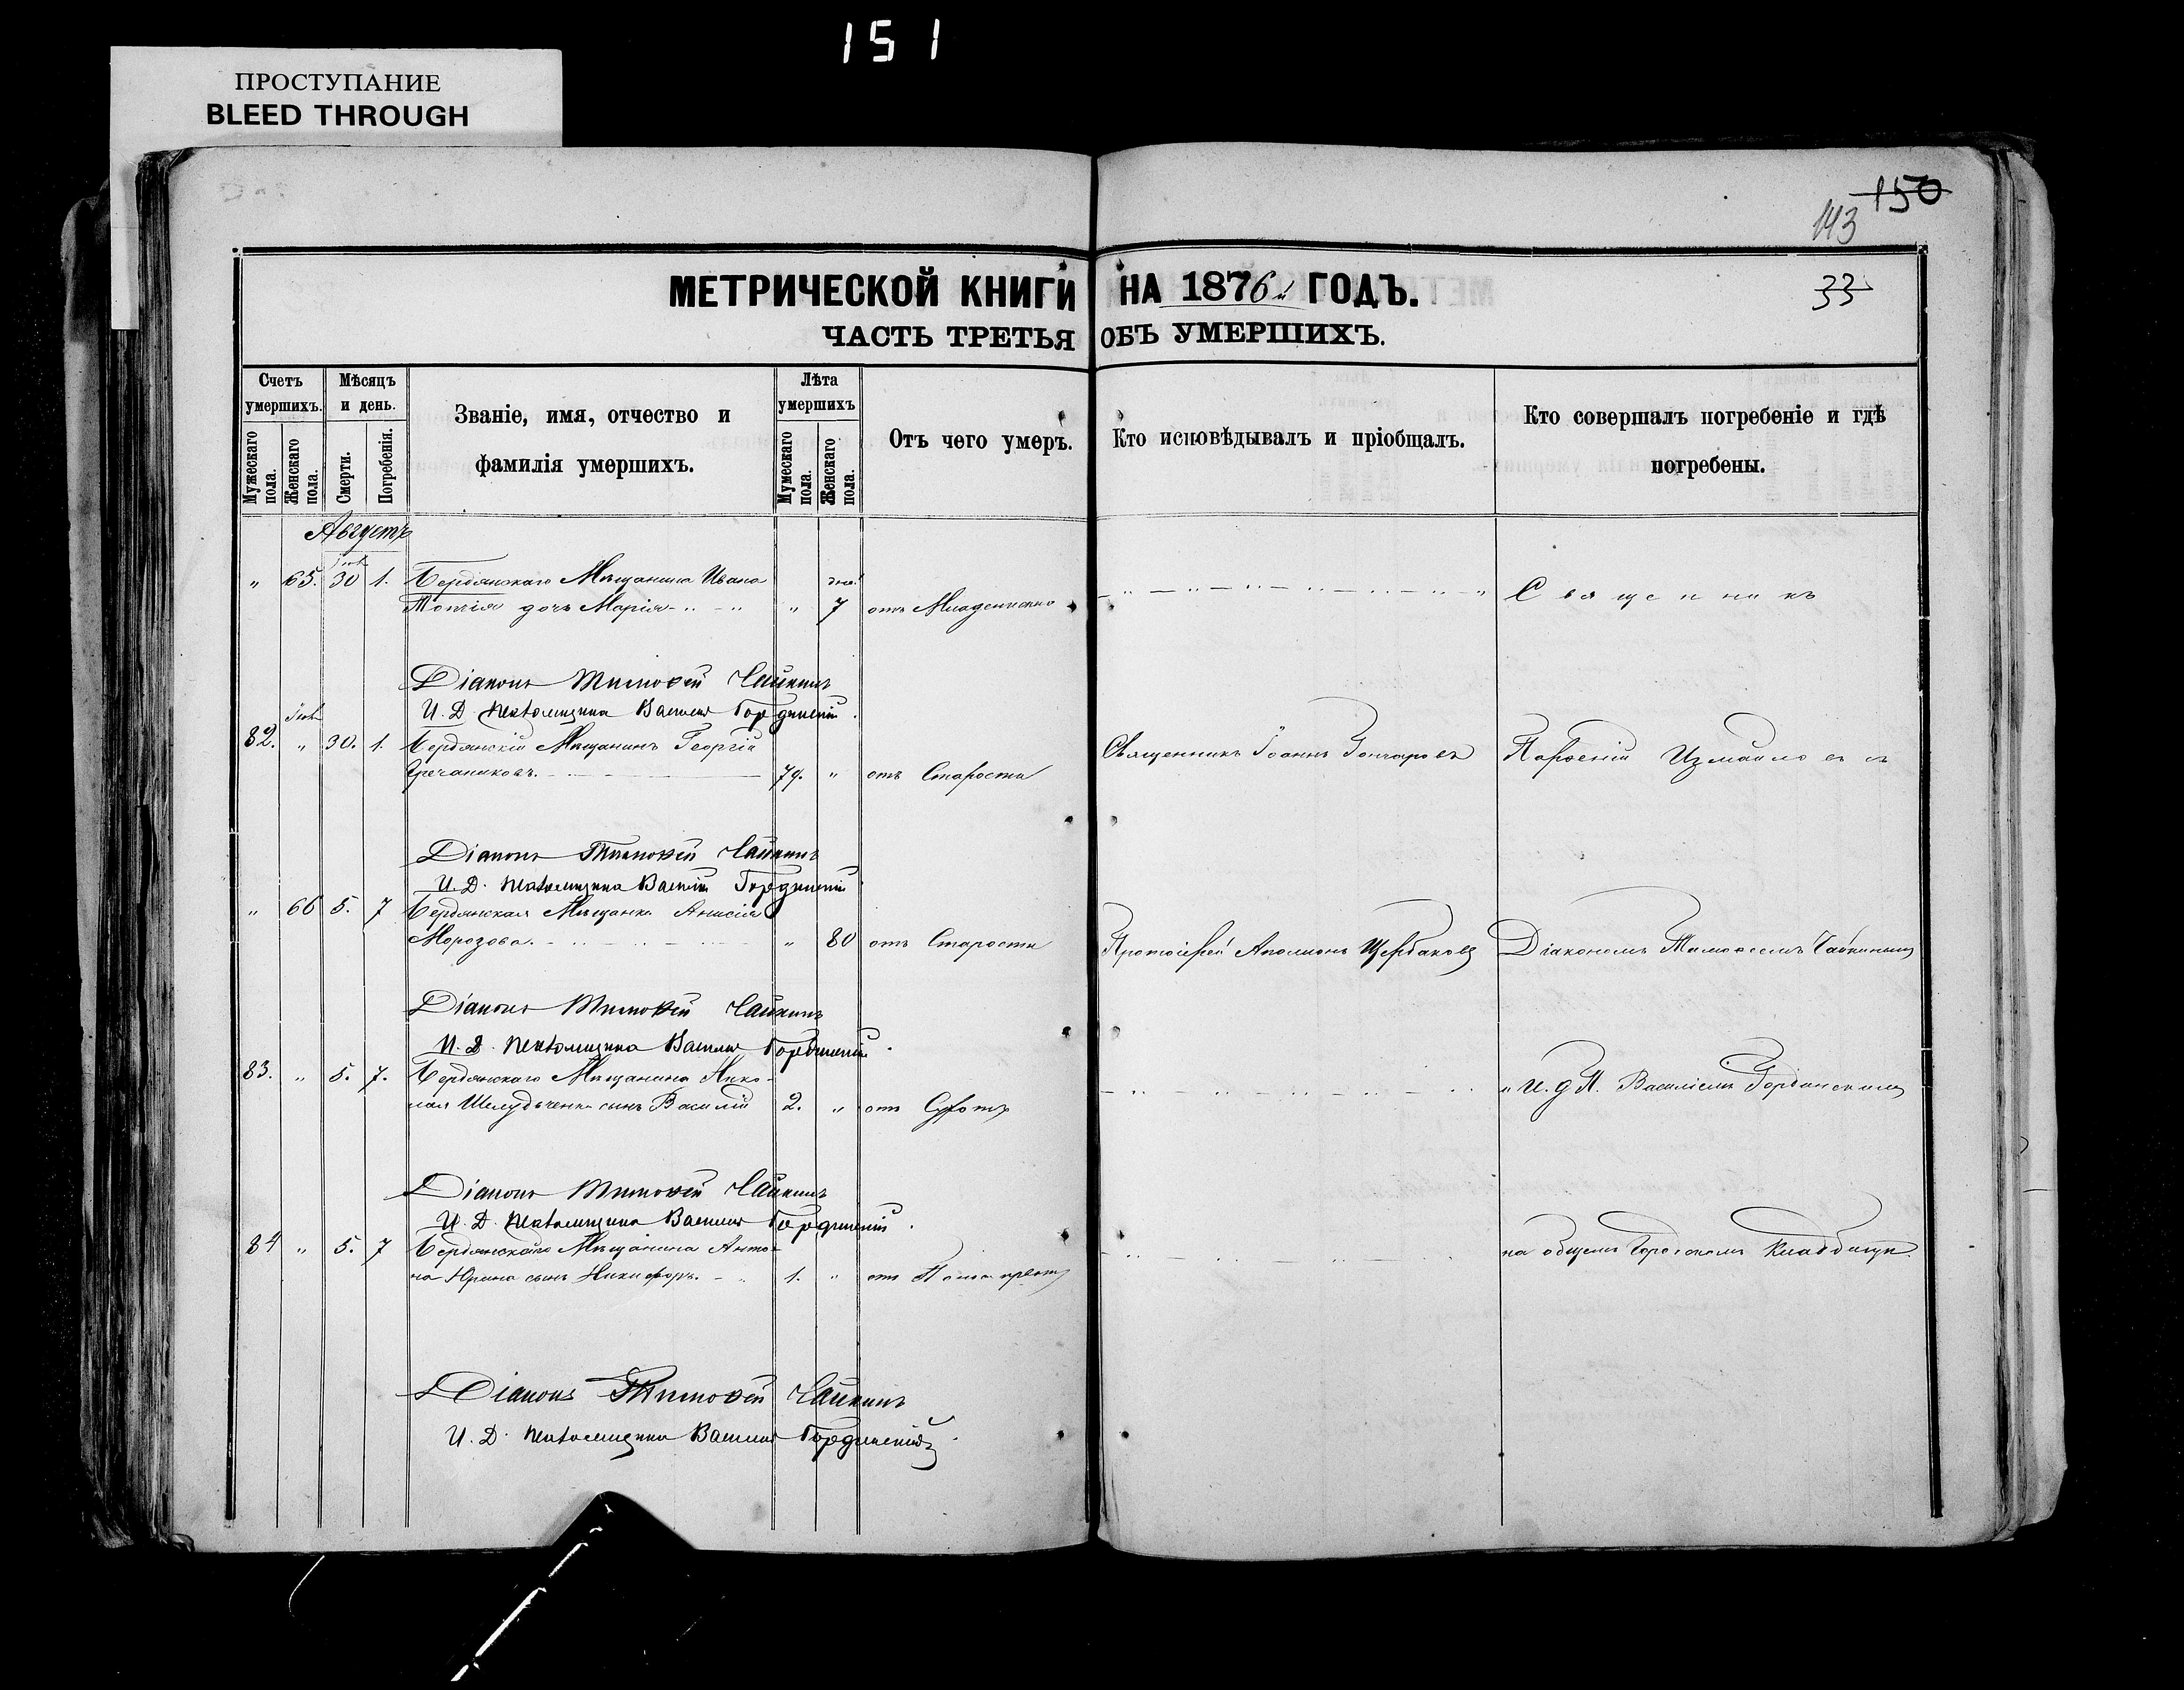 151
ПРОСТУПАНИЕ
BLEED THROUGH
150
143
33
МЕТРИЧЕСКОЙ КНИГИ НА 1876й ГОДЪ.
ЧАСТЬ ТРЕТЬЯ ОБЪ УМЕРШИХЪ.
Счетъ умершихъ.
Мужескаго пола.
Женскаго пола.
Мѣсяцъ и день.
Смерти.
Погребенія.
Званіе, имя, отчество и
фамилія умершихъ.
Лѣта умершихъ
Мужескаго пола.
Женскаго пола.
Отъ чего умеръ.
Кто исповѣдывалъ и пріобщалъ.
Кто совершалъ погребеніе и гдѣ
погребены.
Августъ
" 65. 30 1. Бердянскаго Мѣщанина Ивана
дочь Марія " 7 отъ Младенческо Священникъ
Діаконъ Тимоѳей Чайкинъ
И. Д. Псаломщика Василій Гординскій.
82. " 30. 1. Бердянскій Мѣщанинъ Георгій
Гречаниковъ. 79. " отъ Старости Священникъ Іоаннъ Гончаровъ Парѳеній Измайловъ
Діаконъ Тимоѳей Чайкинъ
И. Д. Псаломщика Василій Гординскій
" 66 5. 7 Бердянская Мѣщанка Анисія
Морозова. " 80 отъ Старости Протоіерей Аполионъ Щербаковъ Діакономъ Тимоѳеемъ Чайкинымъ
Діаконъ Тимоѳей Чайкинъ
И. Д. Псаломщика Василій Гординскій.
83. " 5. 7. Бердянскаго Мѣщанина Нико-
лая Шелудьченка сынъ Василій 2. " отъ " И. д П. Василіемъ Гординскимъ
Діаконъ Тимоѳей Чайкинъ
И. Д. Псаломщика Василій Гординскій.
84 " 5. 7 Бердянскаго Мѣщанина Анто-
на Юрина сынъ Никифоръ. 1. " отъ на общемъ Городскомъ Кладбищѣ.
Діаконъ Тимоѳей Чайкинъ
И. Д. Псаломщика Василій Гординскій